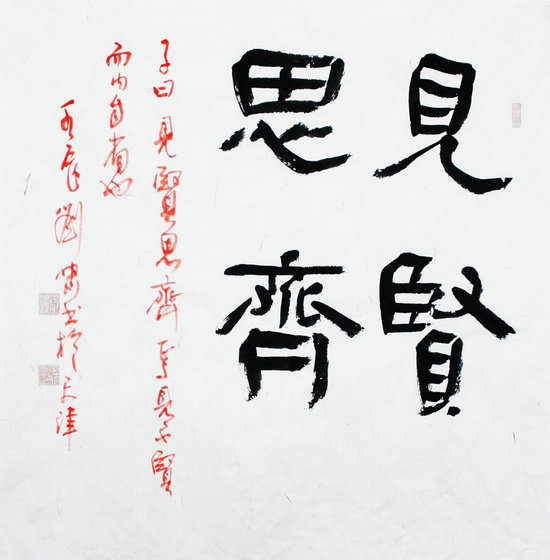 見賢
思齊
子曰見賢思齊焉見不賢
而內自省也
壬辰劉
書於天津